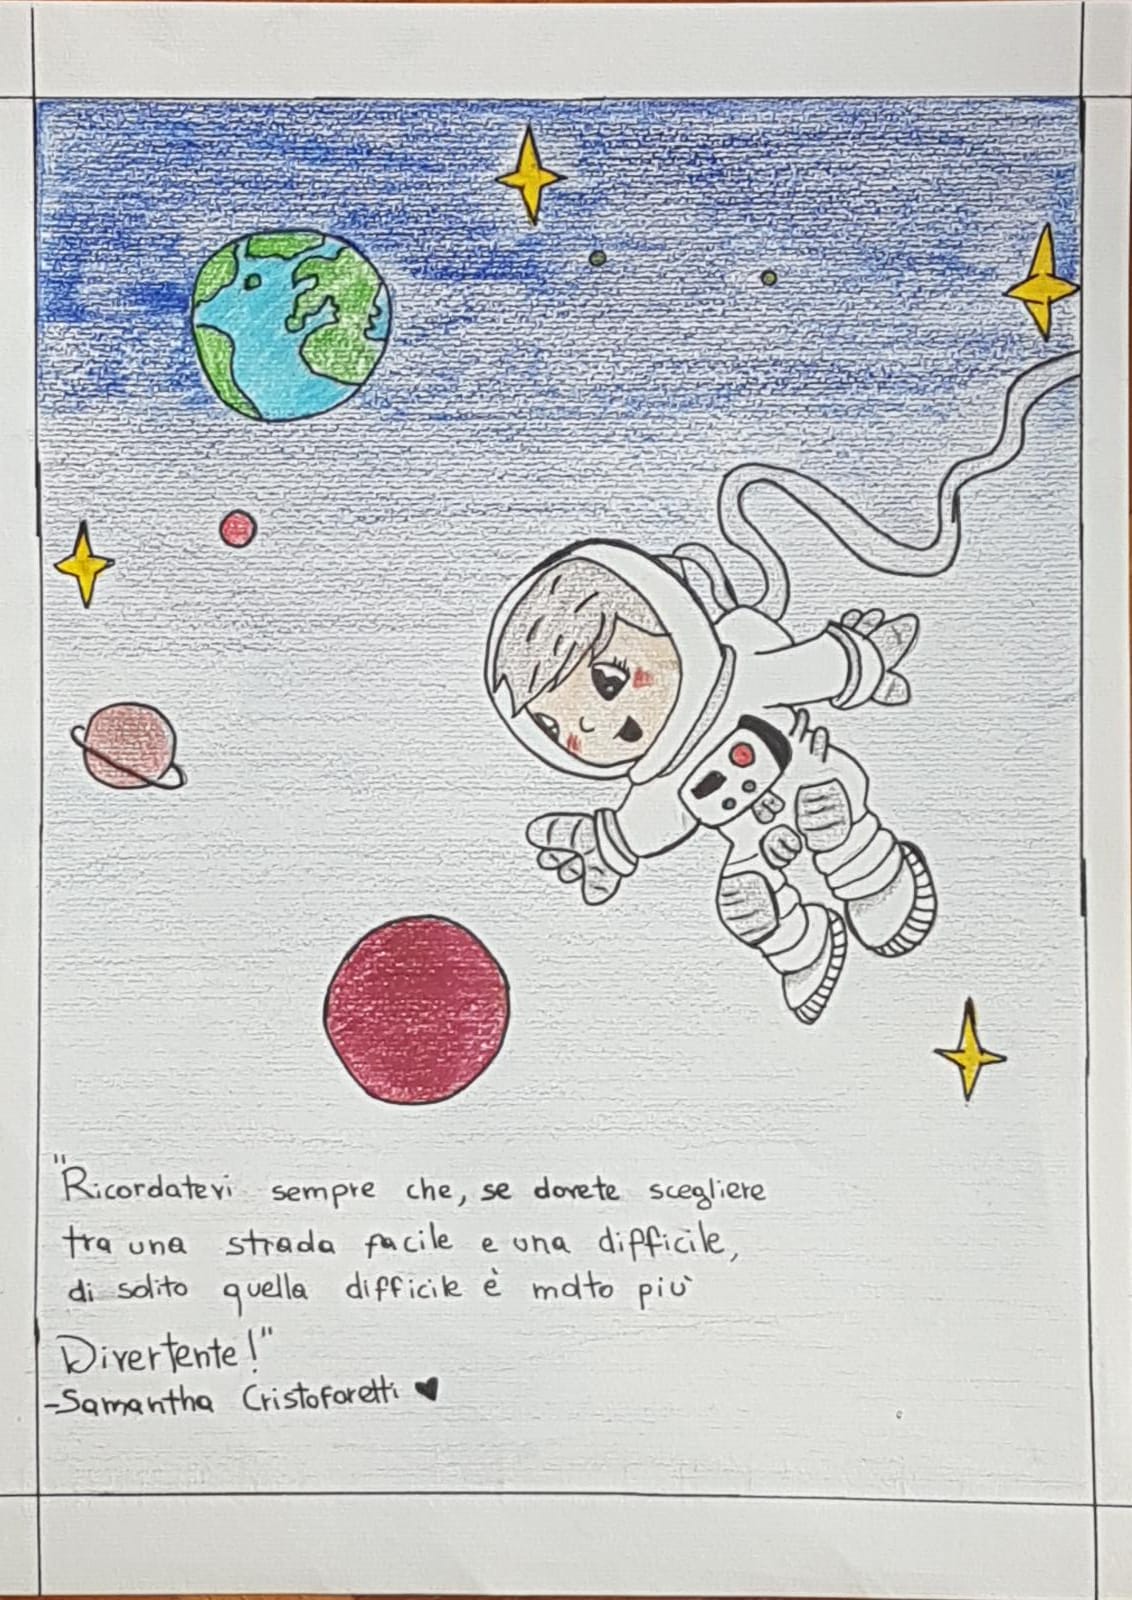 "Ricordatevi sempre che, se dovete scegliere
tra una strada facile e una difficile,
di solito quella difficile è molto più
Divertente!"
-Samantha Cristoforetti ♥